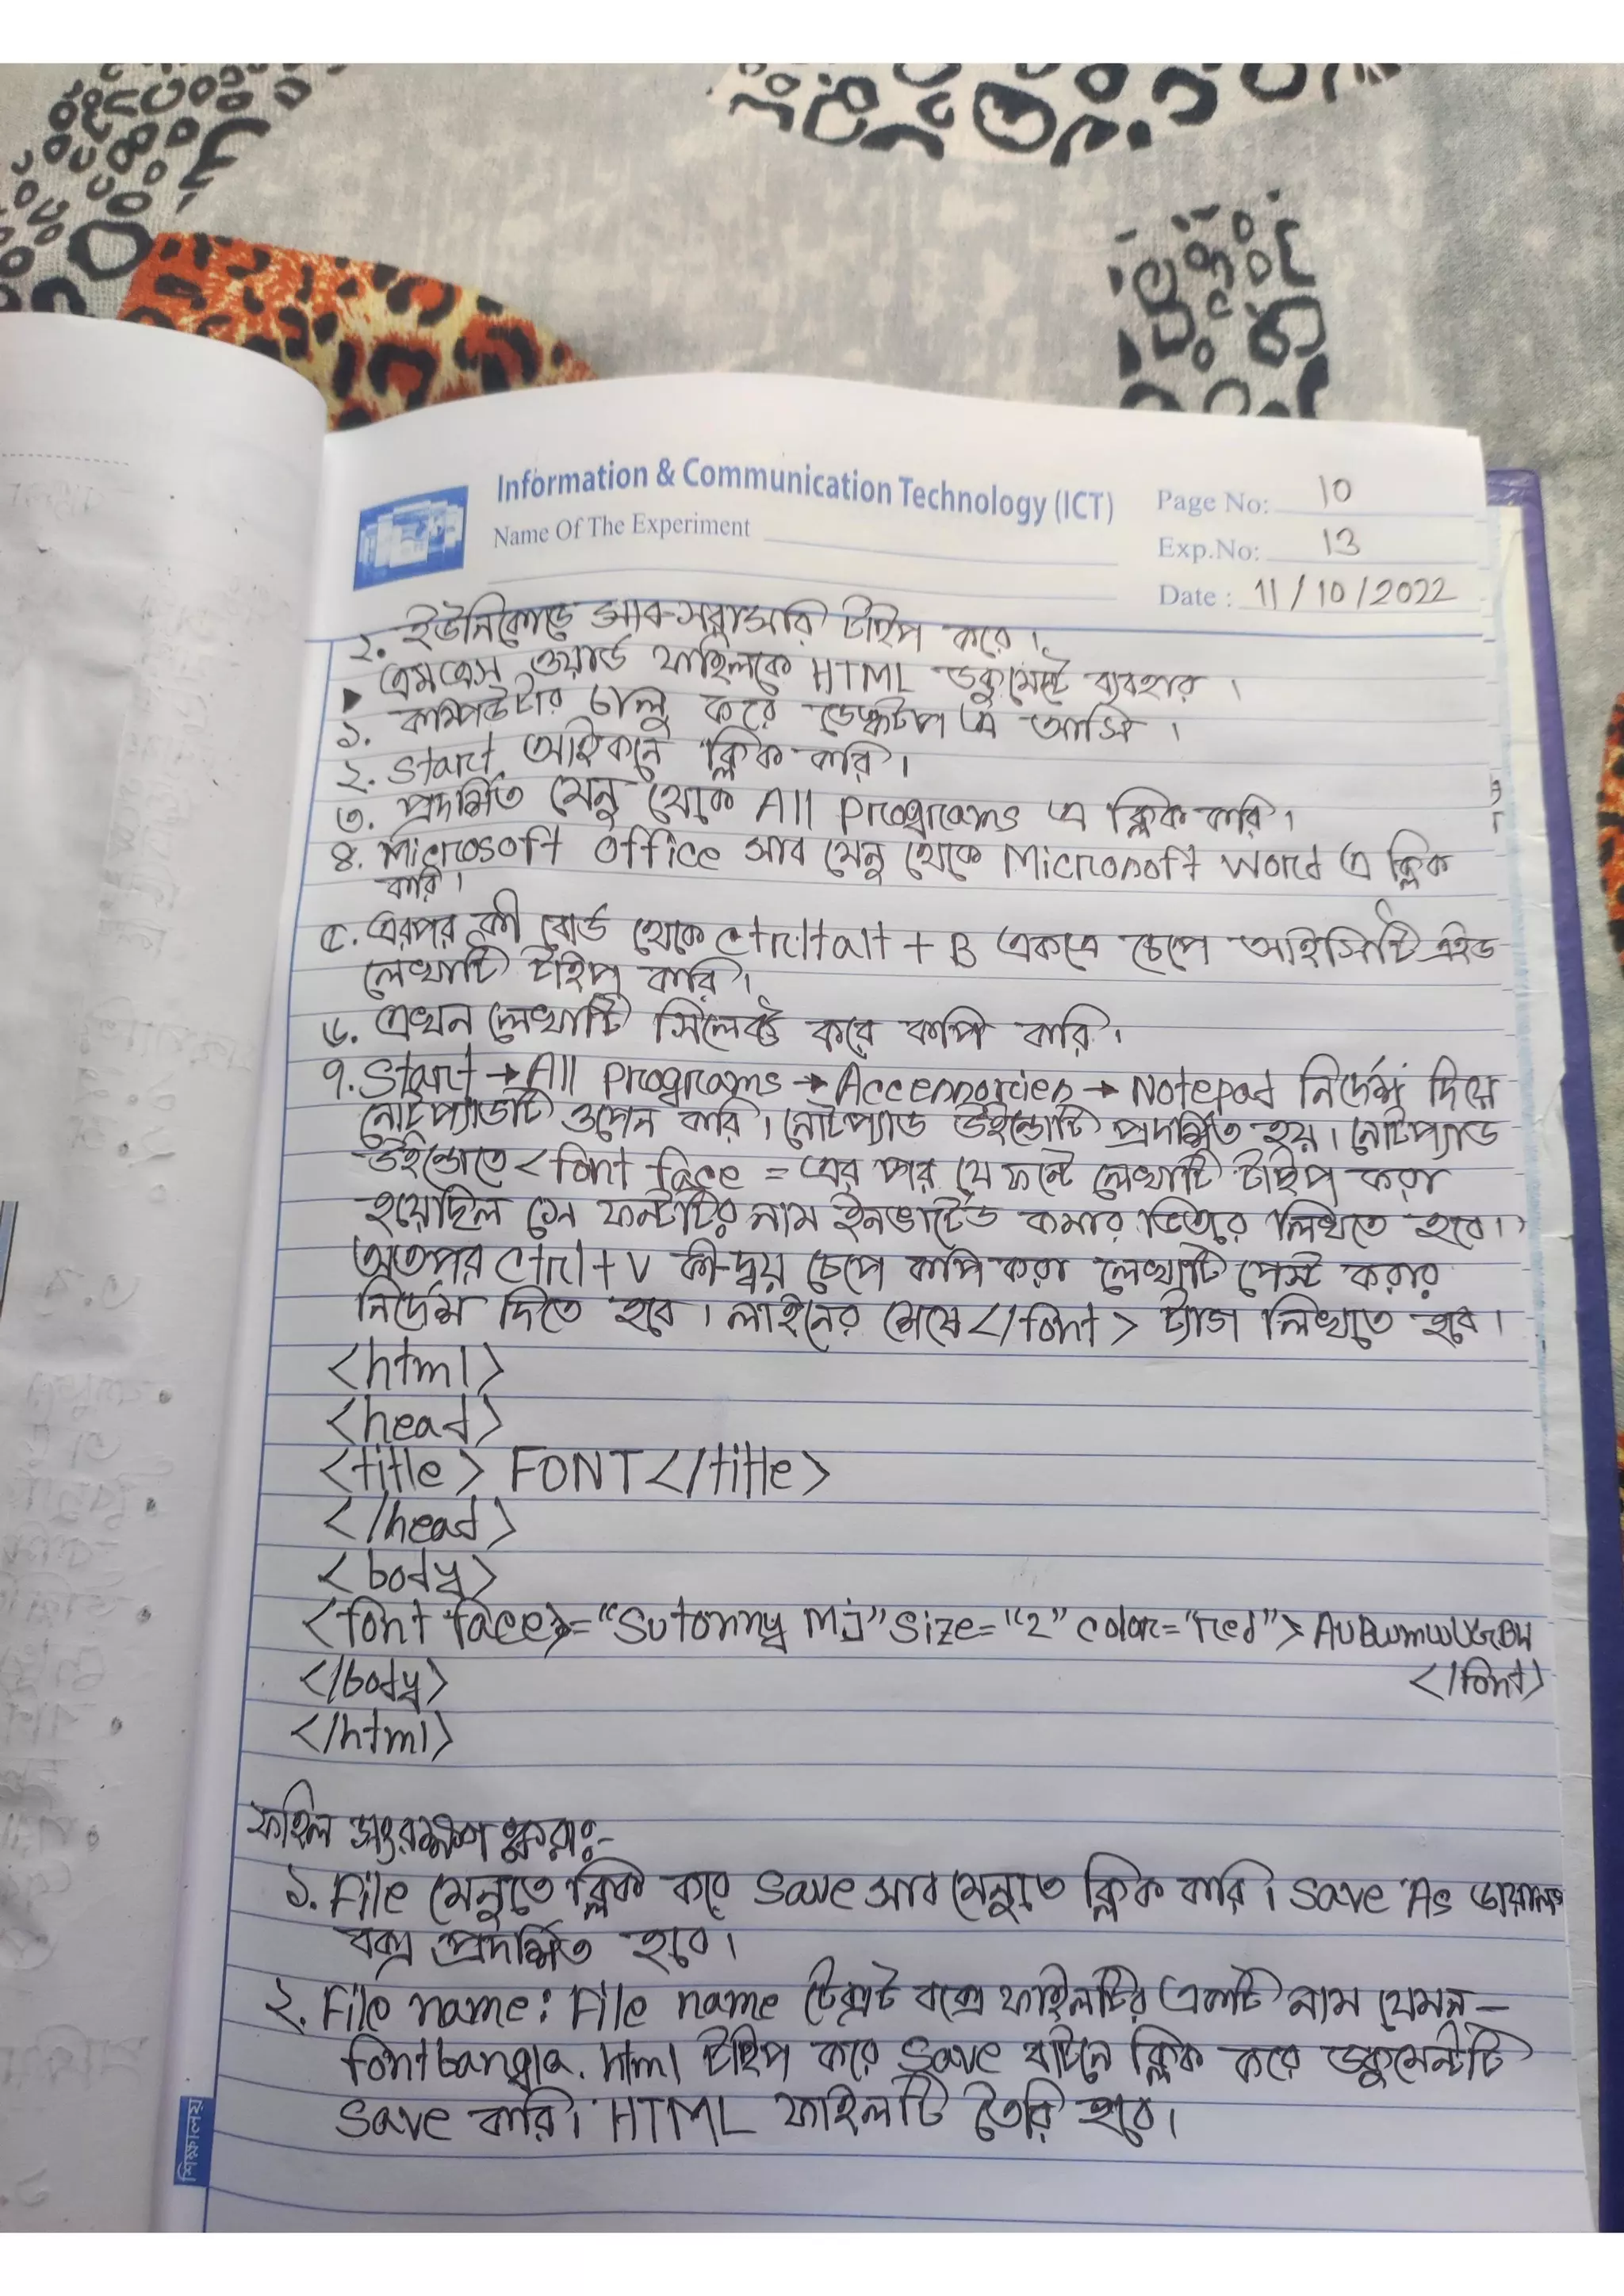 Information & Communication Technology (ICT)
Page No: 10
Name Of The Experiment
Exp.No: 13
Date : 11/10/2022
২. ইউনিকোডে টাইপ করে।
▶ এমএস ওয়ার্ড ফাইলকে HTML ডকুমেন্টে ব্যবহার।
১. কম্পিউটার চালু করে ডেস্কটপ এ আসি।
২. Start আইকনে ক্লিক করি।
৩. প্রদর্শিত মেনু থেকে All Programs এ ক্লিক করি।
৪. Microsoft office সাব মেনু থেকে Microsoft Word এ ক্লিক
করি।
৫. এরপর কী বোর্ড থেকে ctrl+alt + B একত্রে চেপে আইসিটি এইড
লেখাটি টাইপ করি।
৬. এখন লেখাটি সিলেক্ট করে কপি করি।
৭. Start → All Programs → Accessories → Notepad নির্দেশ দিয়ে
নোটপ্যাডটি ওপেন করি। নোটপ্যাড উইন্ডোটি প্রদর্শিত হয়। নোটপ্যাড
উইন্ডোতে <font face = এর পর যে ফন্টে লেখাটি টাইপ করা
হয়েছিল সে ফন্টটির নাম ইনভার্টেড কমার ভিতরে লিখতে হবে।
অতপর ctrl+v কী-দ্বয় চেপে কপি করা লেখাটি পেস্ট করার
নির্দেশ দিতে হবে। লাইনের শেষে </font> ট্যাগ লিখতে হবে।
<html>
<head>
<title> FONT </title>
</head>
<body>
<font face>="Sutonny Mj" size="2" color="red">
</font>
</body>
</html>
ফাইল সংরক্ষণ করাঃ-
১. File মেনুতে ক্লিক করে save সাব মেনুতে ক্লিক করি। save As ডায়ালগ
বক্স প্রদর্শিত হবে।
২. File name: File name টেক্সট বক্সে ফাইলটির একটি নাম যেমন-
fontbangla.html টাইপ করে save বাটনে ক্লিক করে ডকুমেন্টটি
save করি। HTML ফাইলটি তৈরি হবে।
শিক্ষালয়